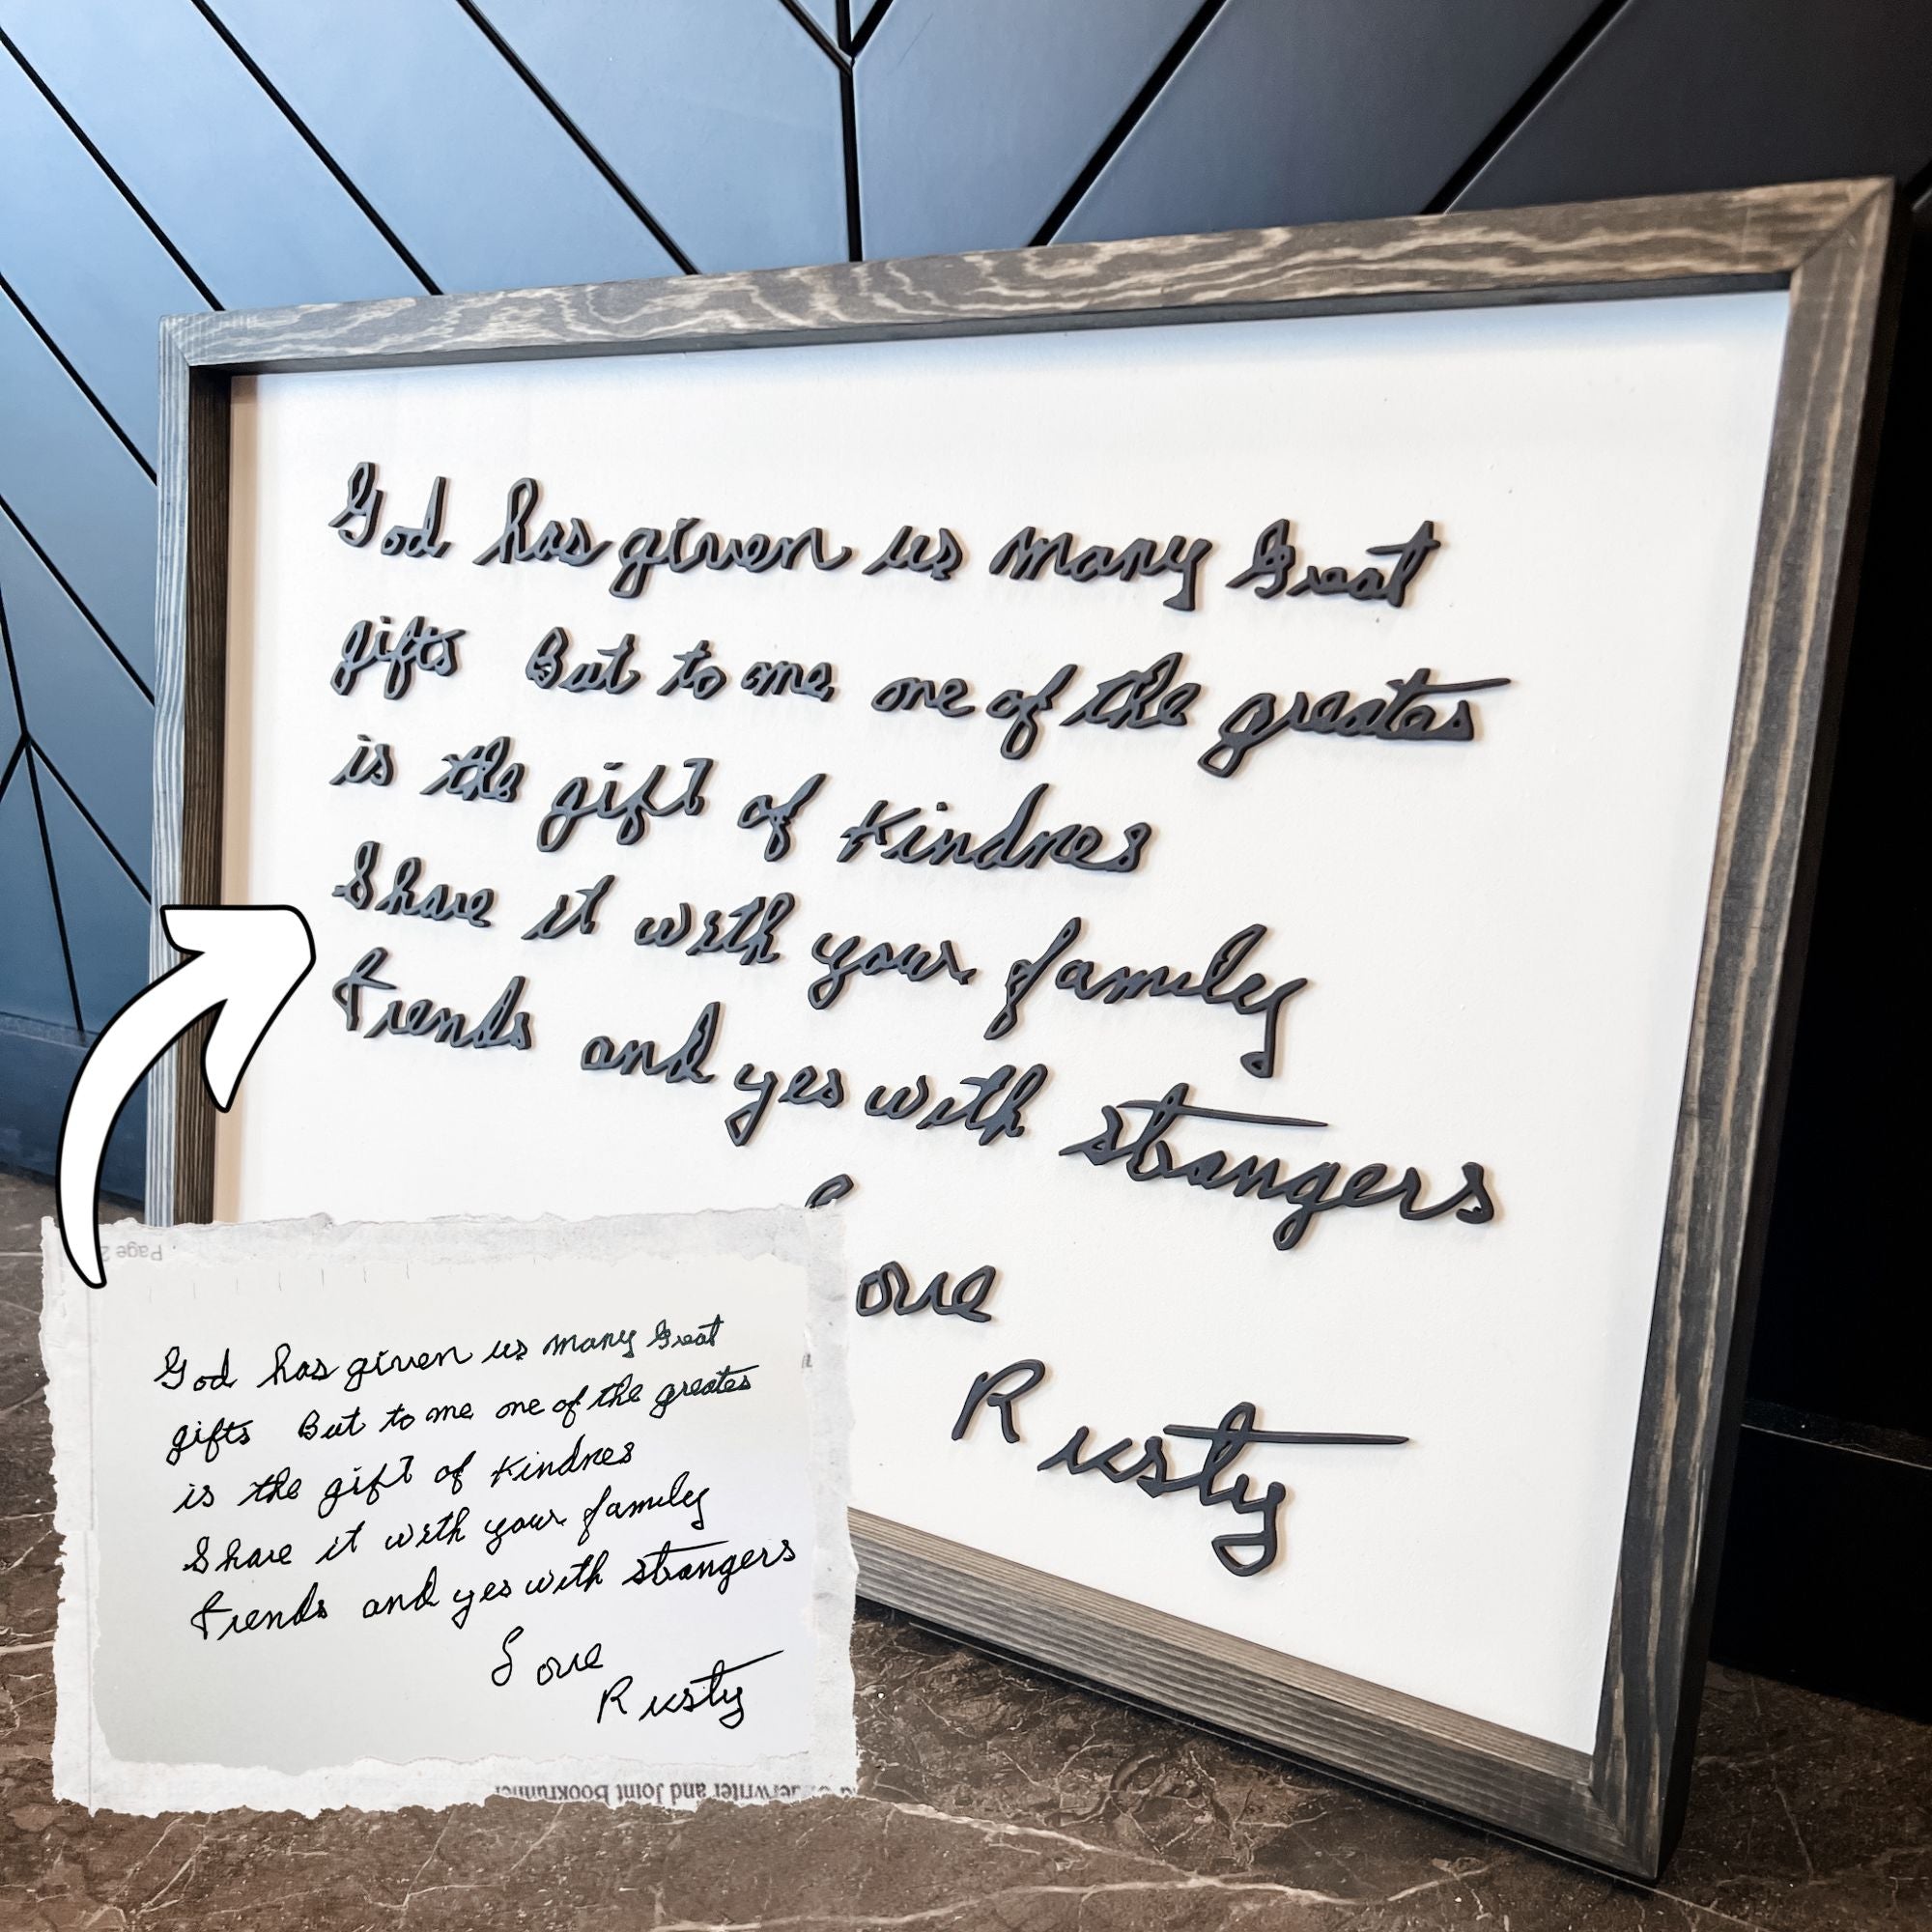 God has given us many Great
gifts But to me one of the greates
is the gift of Kindnes
Share it with your family
friends and yes with strangers
Love
Rusty
Page 2
God has given us many Great
gifts But to me one of the greates
is the gift of Kindnes
Share it with your family
friends and yes with strangers
Love
Rusty
and Joint Bookrunner